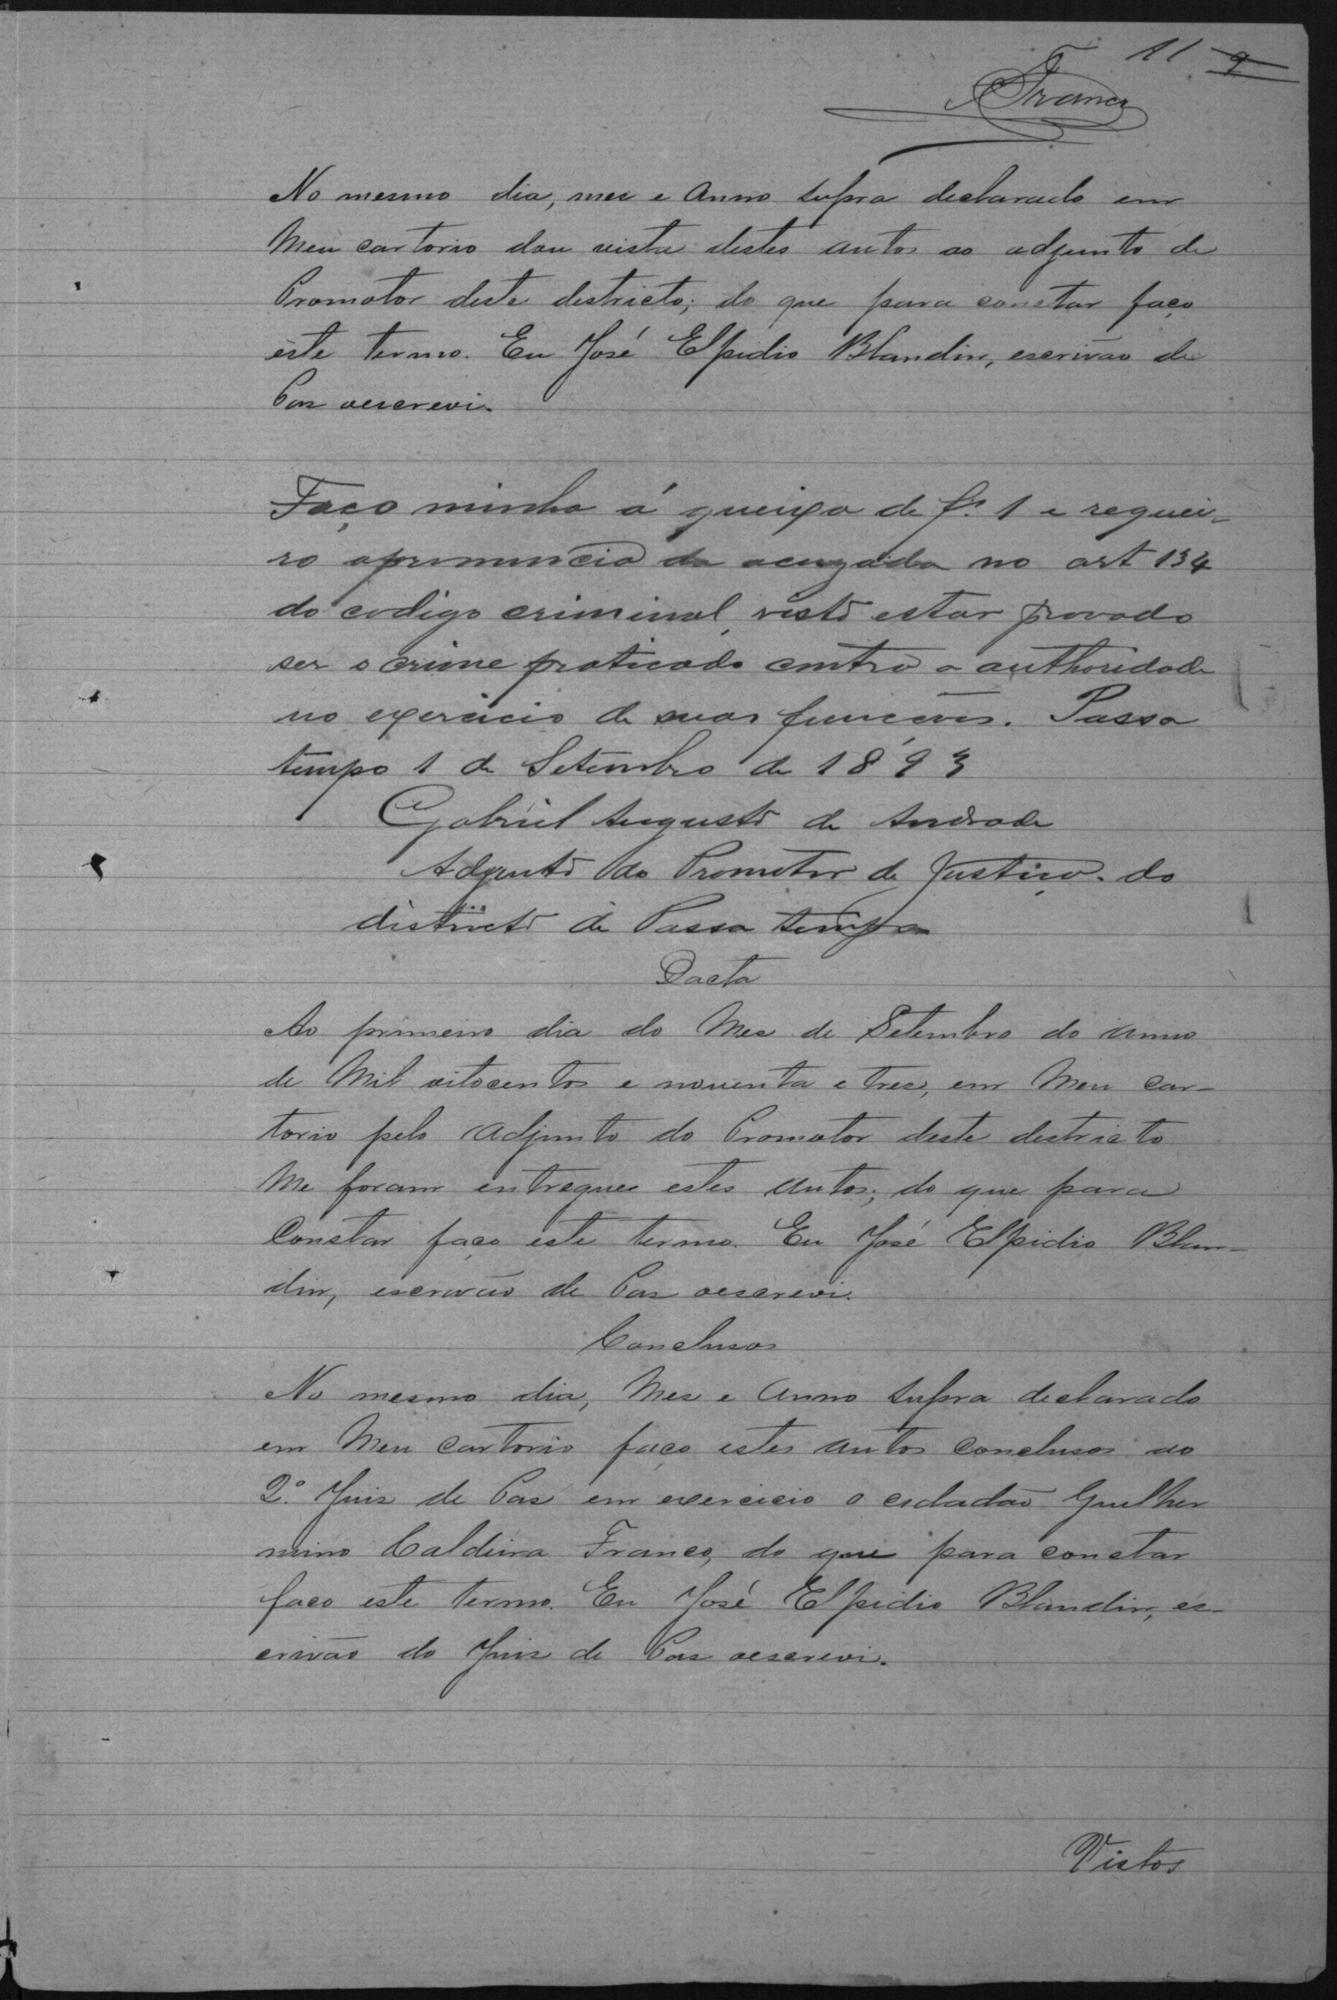 11 9
Franco
No mesmo dia, mez e Anno supra declarado em
Meu cartorio dou vista destes autos ao adjunto de
Promotor deste destricto; do que para constar faço
este termo. Eu José Elpidio Blandin, escrivão de
Paz oescrevi.
Faço minha á queixa de f. 1 e requei-
ro apronuncia da acuzada no art 134
do codigo criminal, visto estar provado
ser o crime praticado contra a authoridade
no exercicio de suas funcções. Passa
tempo 1 de Setembro de 1893
Gabriel Augusto de Andrade
Adjunto do Promotor de Justiça do
districto de Passa tempo
Dacta
Ao primeiro dia do Mez de Setembro do anno
de Mil oitocentos e noventa e tres, em Meu car-
torio pelo Adjunto do Promotor deste destricto
Me foram entregues estes autos; do que para
Constar faço este termo. Eu José Elpidio Blan-
din, escrivão de Paz oescrevi.
Conclusos
No mesmo dia, Mez e Anno supra declarado
em Meu cartorio faço estes autos conclusos ao
2º Juiz de Paz em exercicio o cidadão Guelher
mino Caldeira Franco, do que para constar
faço este termo. Eu José Elpidio Blandin, es-
crivão do Juiz de Paz oescrevi.
Vistos